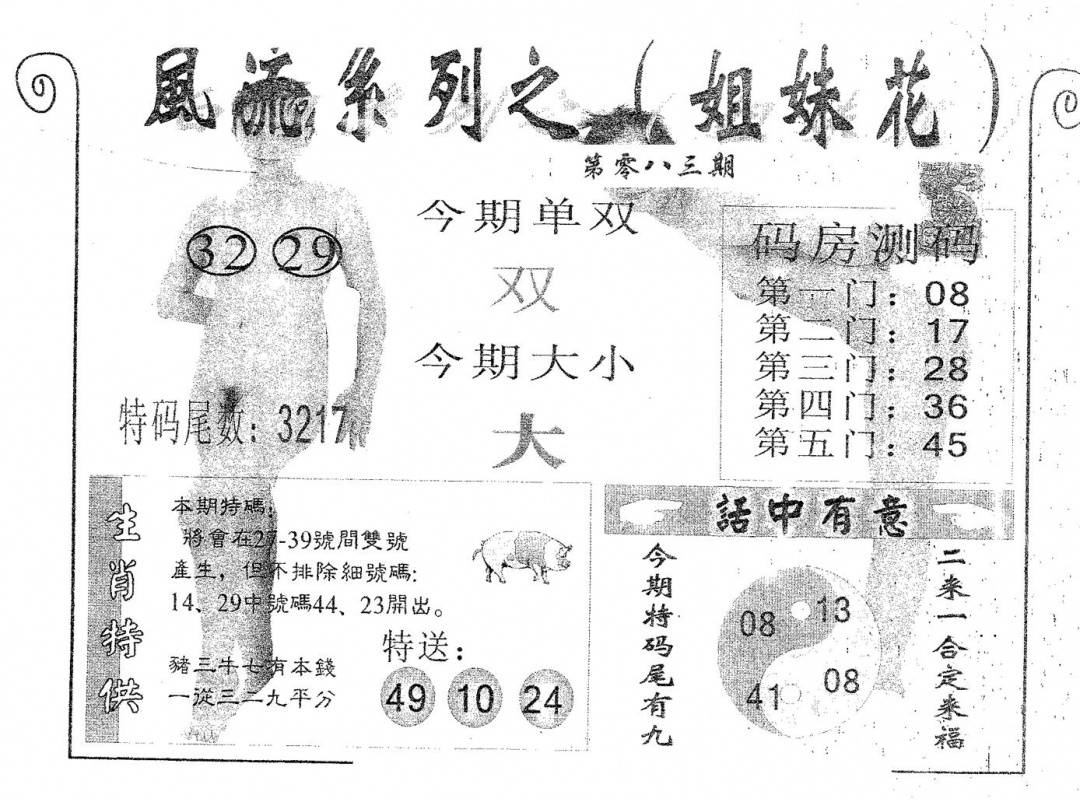 風流系列之（姐妹花）
第零八三期
32 29
今期单双
双
今期大小
大
特码尾数：3217
码房测码
第一门：08
第二门：17
第三门：28
第四门：36
第五门：45
生肖特供
本期特碼：
將會在27-39號間雙號
產生，但不排除細號碼：
14、29中號碼44、23開出。
特送：
豬三牛七有本錢
一從三二九平分
49 10 24
話中有意
今期特码尾有九
08 13
41 08
二来一合定来福